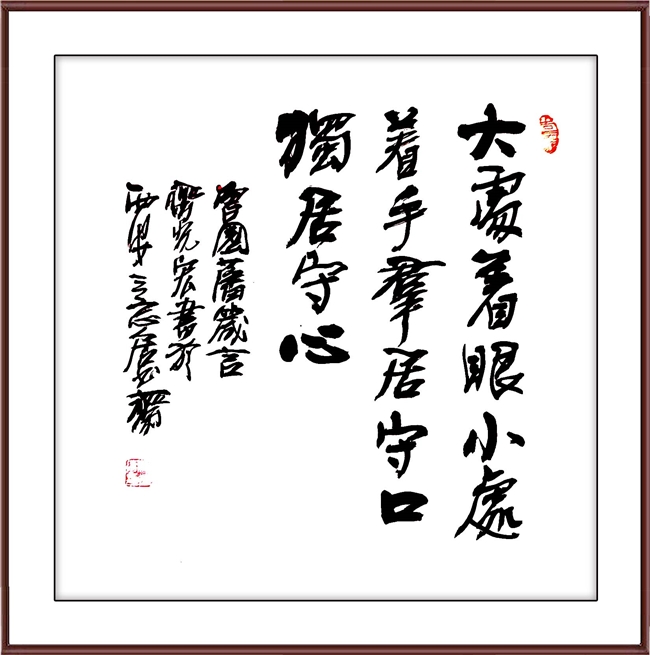 大處着眼小處
着手羣居守口
獨居守心
曾國藩箴言
光宏書於
居